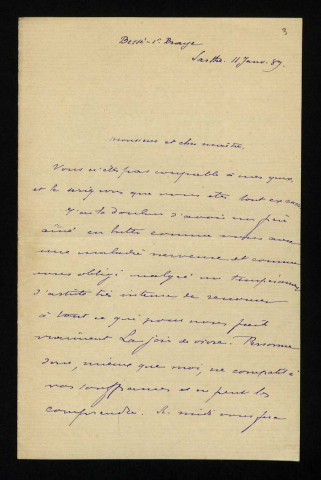 3
Bessé-s-Braye
Sarthe. 11 Janv. 89.
Monsieur et cher maître,
Vous n'êtes pas coupable à mes yeux,
et le serez-vous que vous êtes tout excusé
J'ai la douleur d'avoir un frère
aîné en lutte comme vous avec
une maladie nerveuse et comme
vous obligé malgré un tempérament
d'artiste très intense de renoncer
à tout ce qui pour nous fait
vraiment La joie de vivre. Personne
donc, mieux que moi, ne compatit à
vos souffrances et ne peut les
comprendre.